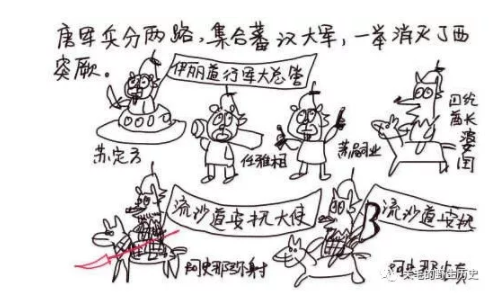 唐军兵分两路,集合蕃汉大军,一举消灭了西
突厥。
伊丽道行军大总管
苏定方
任雅相
萧嗣业
回纥
酋长
婆闰
流沙道安抚大使
阿史那弥射
流沙道安抚
阿史那步真